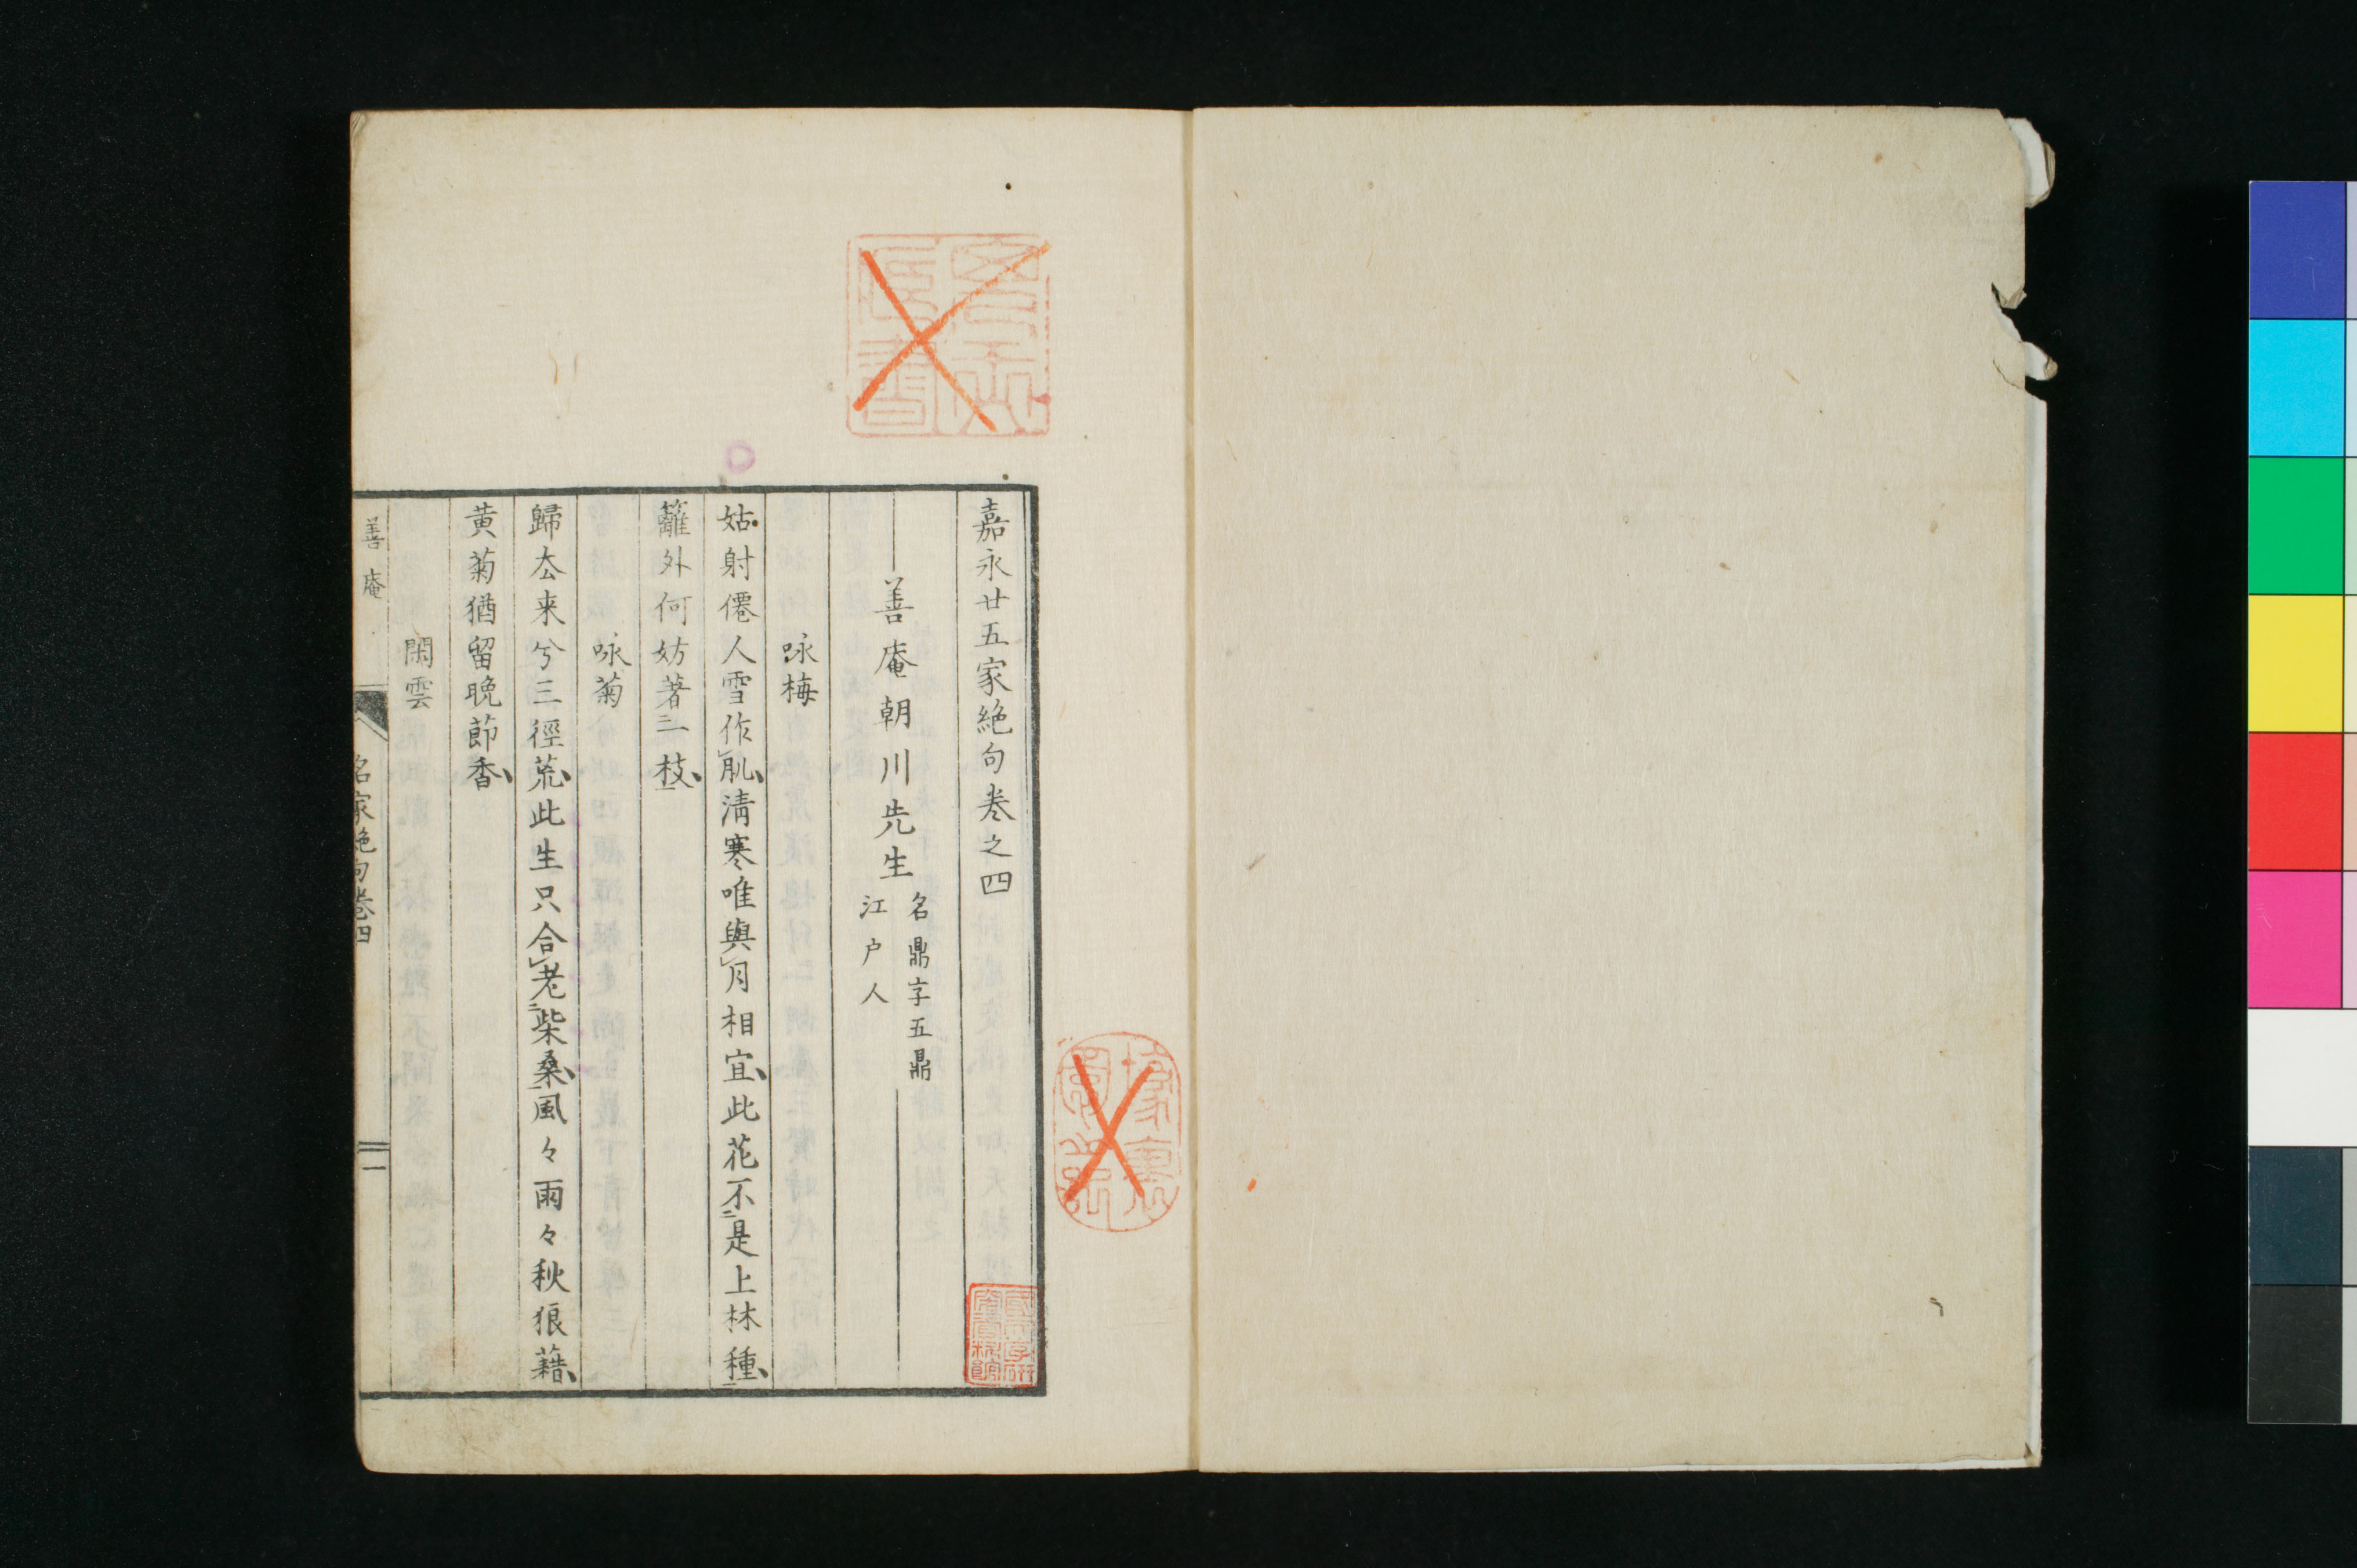 嘉永廿五家絶句巻之四
善庵朝川先生
名鼎字五鼎
江戸人
咏梅
姑射僊人雪作肌清寒唯與月相宜此花不是上林種
籬外何妨著一枝
咏菊
歸厺来兮三徑荒此生只合老柴桑風々雨々秋狼藉
黄菊猶留晩節香
閑雲
善庵
名家絶句巻四
一